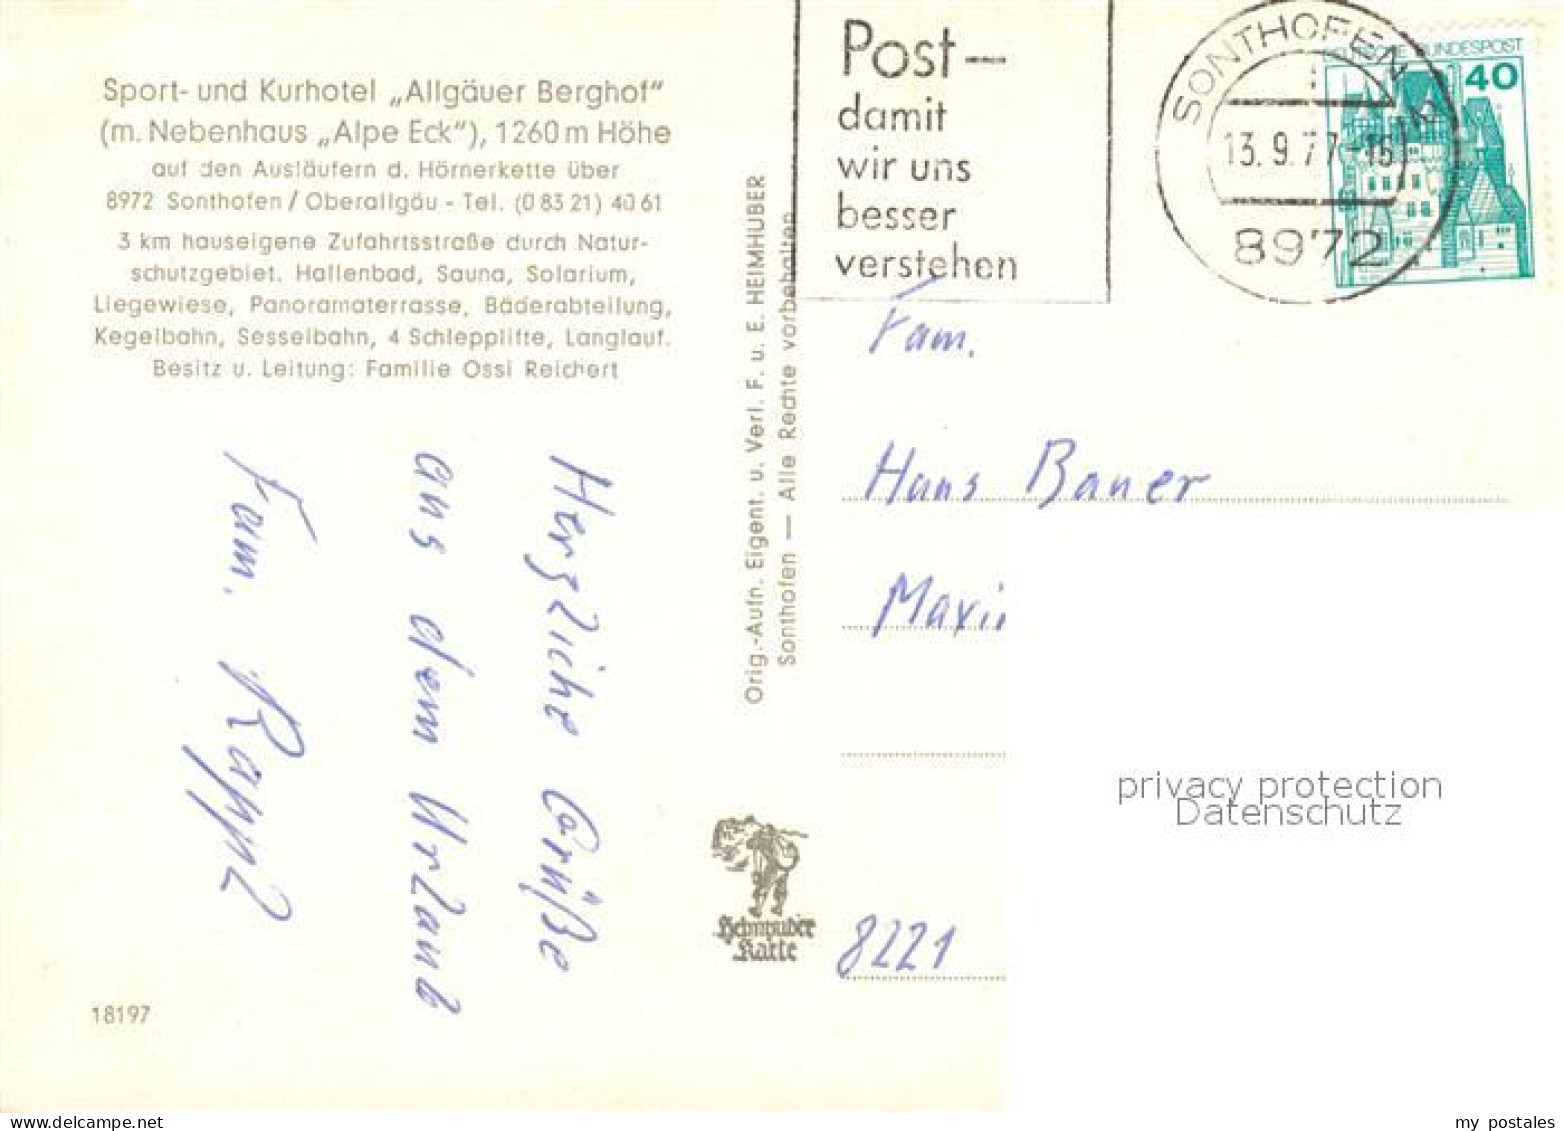 Sport- und Kurhotel „Allgäuer Berghof"
(m. Nebenhaus „Alpe Eck"), 1260 m Höhe
auf den Ausläufern d. Hörnerkette über
8972 Sonthofen / Oberallgäu - Tel. (0 83 21) 40 61
3 km hauseigene Zufahrtsstraße durch Natur-
schutzgebiet. Hallenbad, Sauna, Solarium,
Liegewiese, Panoramaterrasse, Bäderabteilung,
Kegelbahn, Sesselbahn, 4 Schlepplifte, Langlauf.
Besitz u. Leitung: Familie Ossi Reichert
Herzliche Grüße
aus dem Urlaub
Fam. Rappl
18197
Orig.-Aufn. Eigent. u. Verl. F. u. E. HEIMHUBER
Sonthofen — Alle Rechte vorbehalten
Heimhuber
Karte
Post–
damit
wir uns
besser
verstehen
SONTHOFEN
13.9.77-15
8972
BUNDESPOST
40
Fam.
Hans Bauer
8221
privacy protection
Datenschutz
my postales